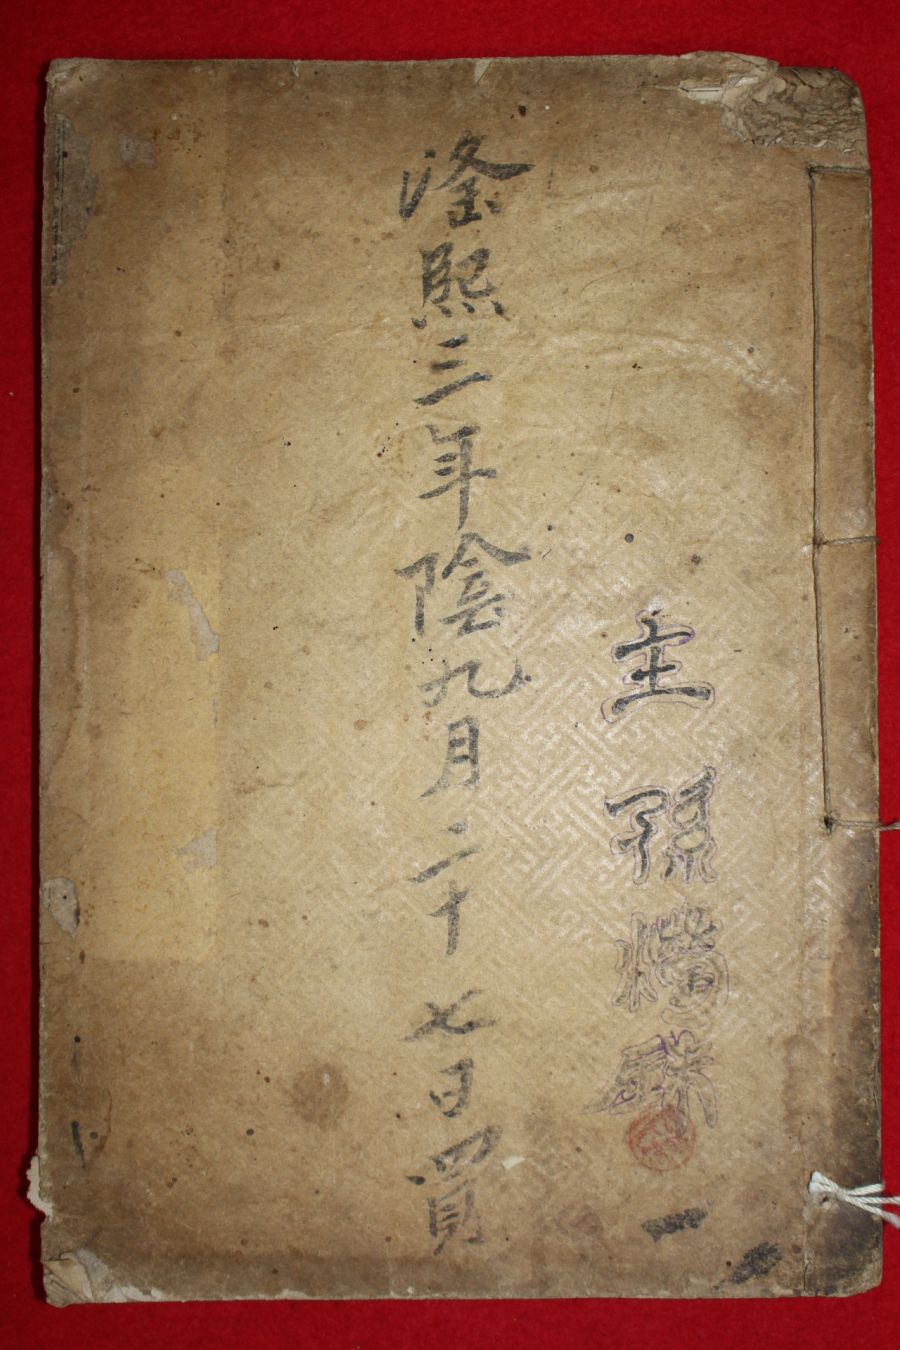 主孫
一
隆熙三年陰九月二十七日買